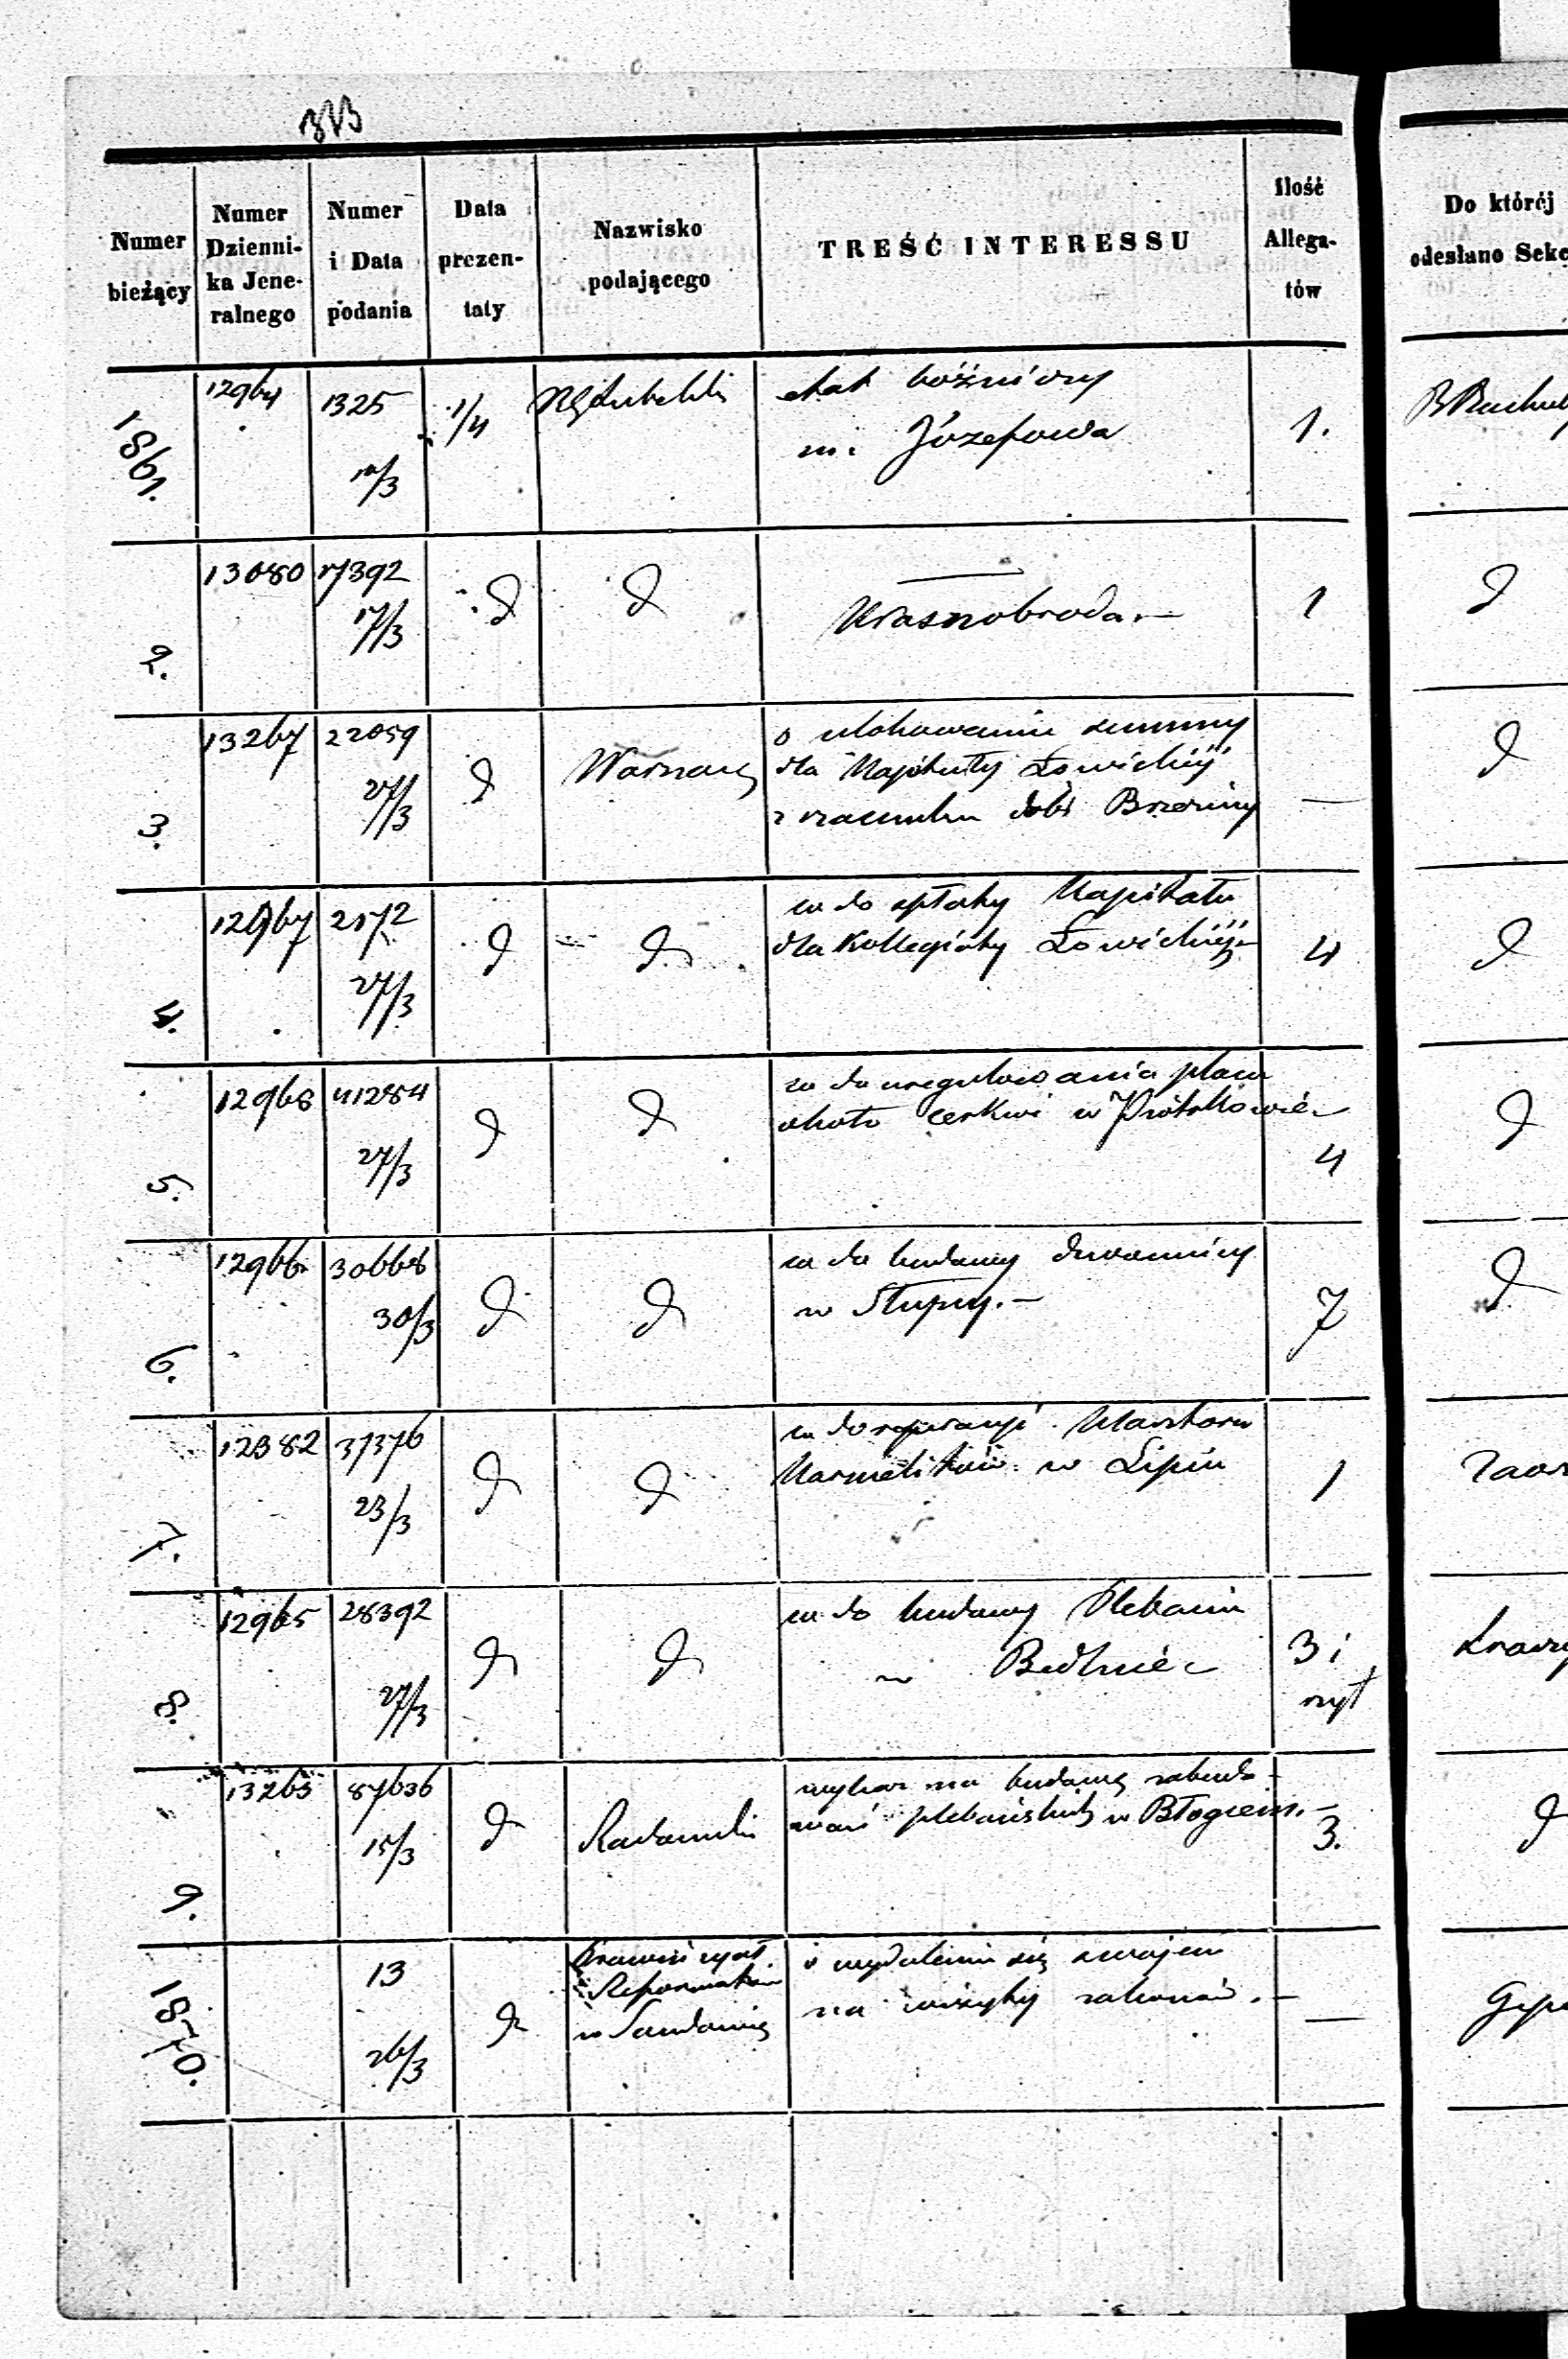 Numer bieżący
Numer Dzienni-ka Jene-ralnego
Numer i Data podania
Data prezen-taty
Nazwisko podającego
TREŚĆ INTERESSU
Ilość Allega-tów
Do któréj odesłano Sekc
1861.
12964
1325
1/4
etat bóźniczy
m. Józefowa
1.
2.
13080
17392
17/3
d
d
Krasnobroda.—
1
d
3.
13267
22059
27/3
d
Warszaws
o ulokowaniu summy
dla Kapituły Łowickiéj
z szacunku dóbr Brzeziny
—
d
4.
12967
2172
27/3
d
d
co do spłaty Kapitału
dla Kollegiaty Łowickiéj
4
d
5.
12968
41284
27/3
d
d
co do uregulowania placu
około cerkwi w Piotrkowie
4
d
6.
12966
30668
30/3
d
d
co do budowy dzwonnicy
w Słupcy.—
7
d
7.
12382
37376
23/3
d
d
co do reperacyi Klasztoru
Karmelitów w Lipiu
1
8.
12965
28392
27/3
d
d
co do budowy Plebanii
w Bedlnie
3 i
9.
13265
87636
15/3
d
Radomski
wykaz na budowę zabudo-
wań plebańskich w Błogiem.—
3.
d
1870.
13
26/3
d
Reformatów
w Sandomie
o wydaleniu się
na wizytę zakonów.—
—